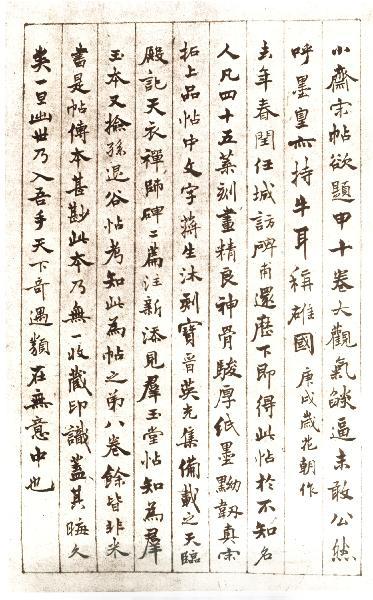 小齋宋帖欲題甲十卷大觀氣餤逼未敢公然
呼墨皇亦持牛耳稱雄國庚戌歲花朝作
去年春閏任城訪碑甫還歷下即得此帖於不知名
人凡四十五葉刻畫精良神骨駿厚紙墨黝韌真宋
拓上品帖中文字蔣生沐刻寶晉英光集備載之天臨
殿記天衣禪師碑二篇注新添見羣玉堂帖知為羣
玉本又撿孫退谷帖考知此為帖之第八卷餘皆非米
書是帖傳本甚尠此本乃無一收藏印識蓋其晦久
矣一旦出世乃入吾手天下奇遇類在無意中也